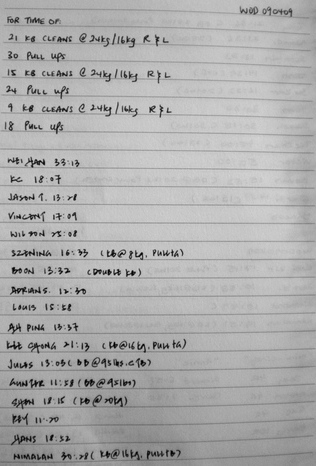 WOD 090409
FOR TIME OF:
21 KB CLEANS @ 24kg/16kg R & L
30 PULL UPS
15 KB CLEANS @ 24kg/16kg R & L
24 PULL UPS
9 KB CLEANS @ 24kg/16kg R & L
18 PULL UPS
WEI HAN 33:13
KC 18:07
JASON T. 13:28
VINCENT 17:09
WILSON 25:08
SZENING 16:33 (KB@8kg,
BOON 13:32 (DOUBLE KB)
ADRIAN S. 12:30
LOUIS 15:58
AH PING 13:57
LEE CHONG 21:13 (KB@16kg,
JULES 13:03 (BB@95lbs,
GUNTER 11:58 (BB@95lbs)
SHEN 18:15 (KB@20kg)
11:20
HANS 18:52
NIMALAN 30:28 (KB@16kg,